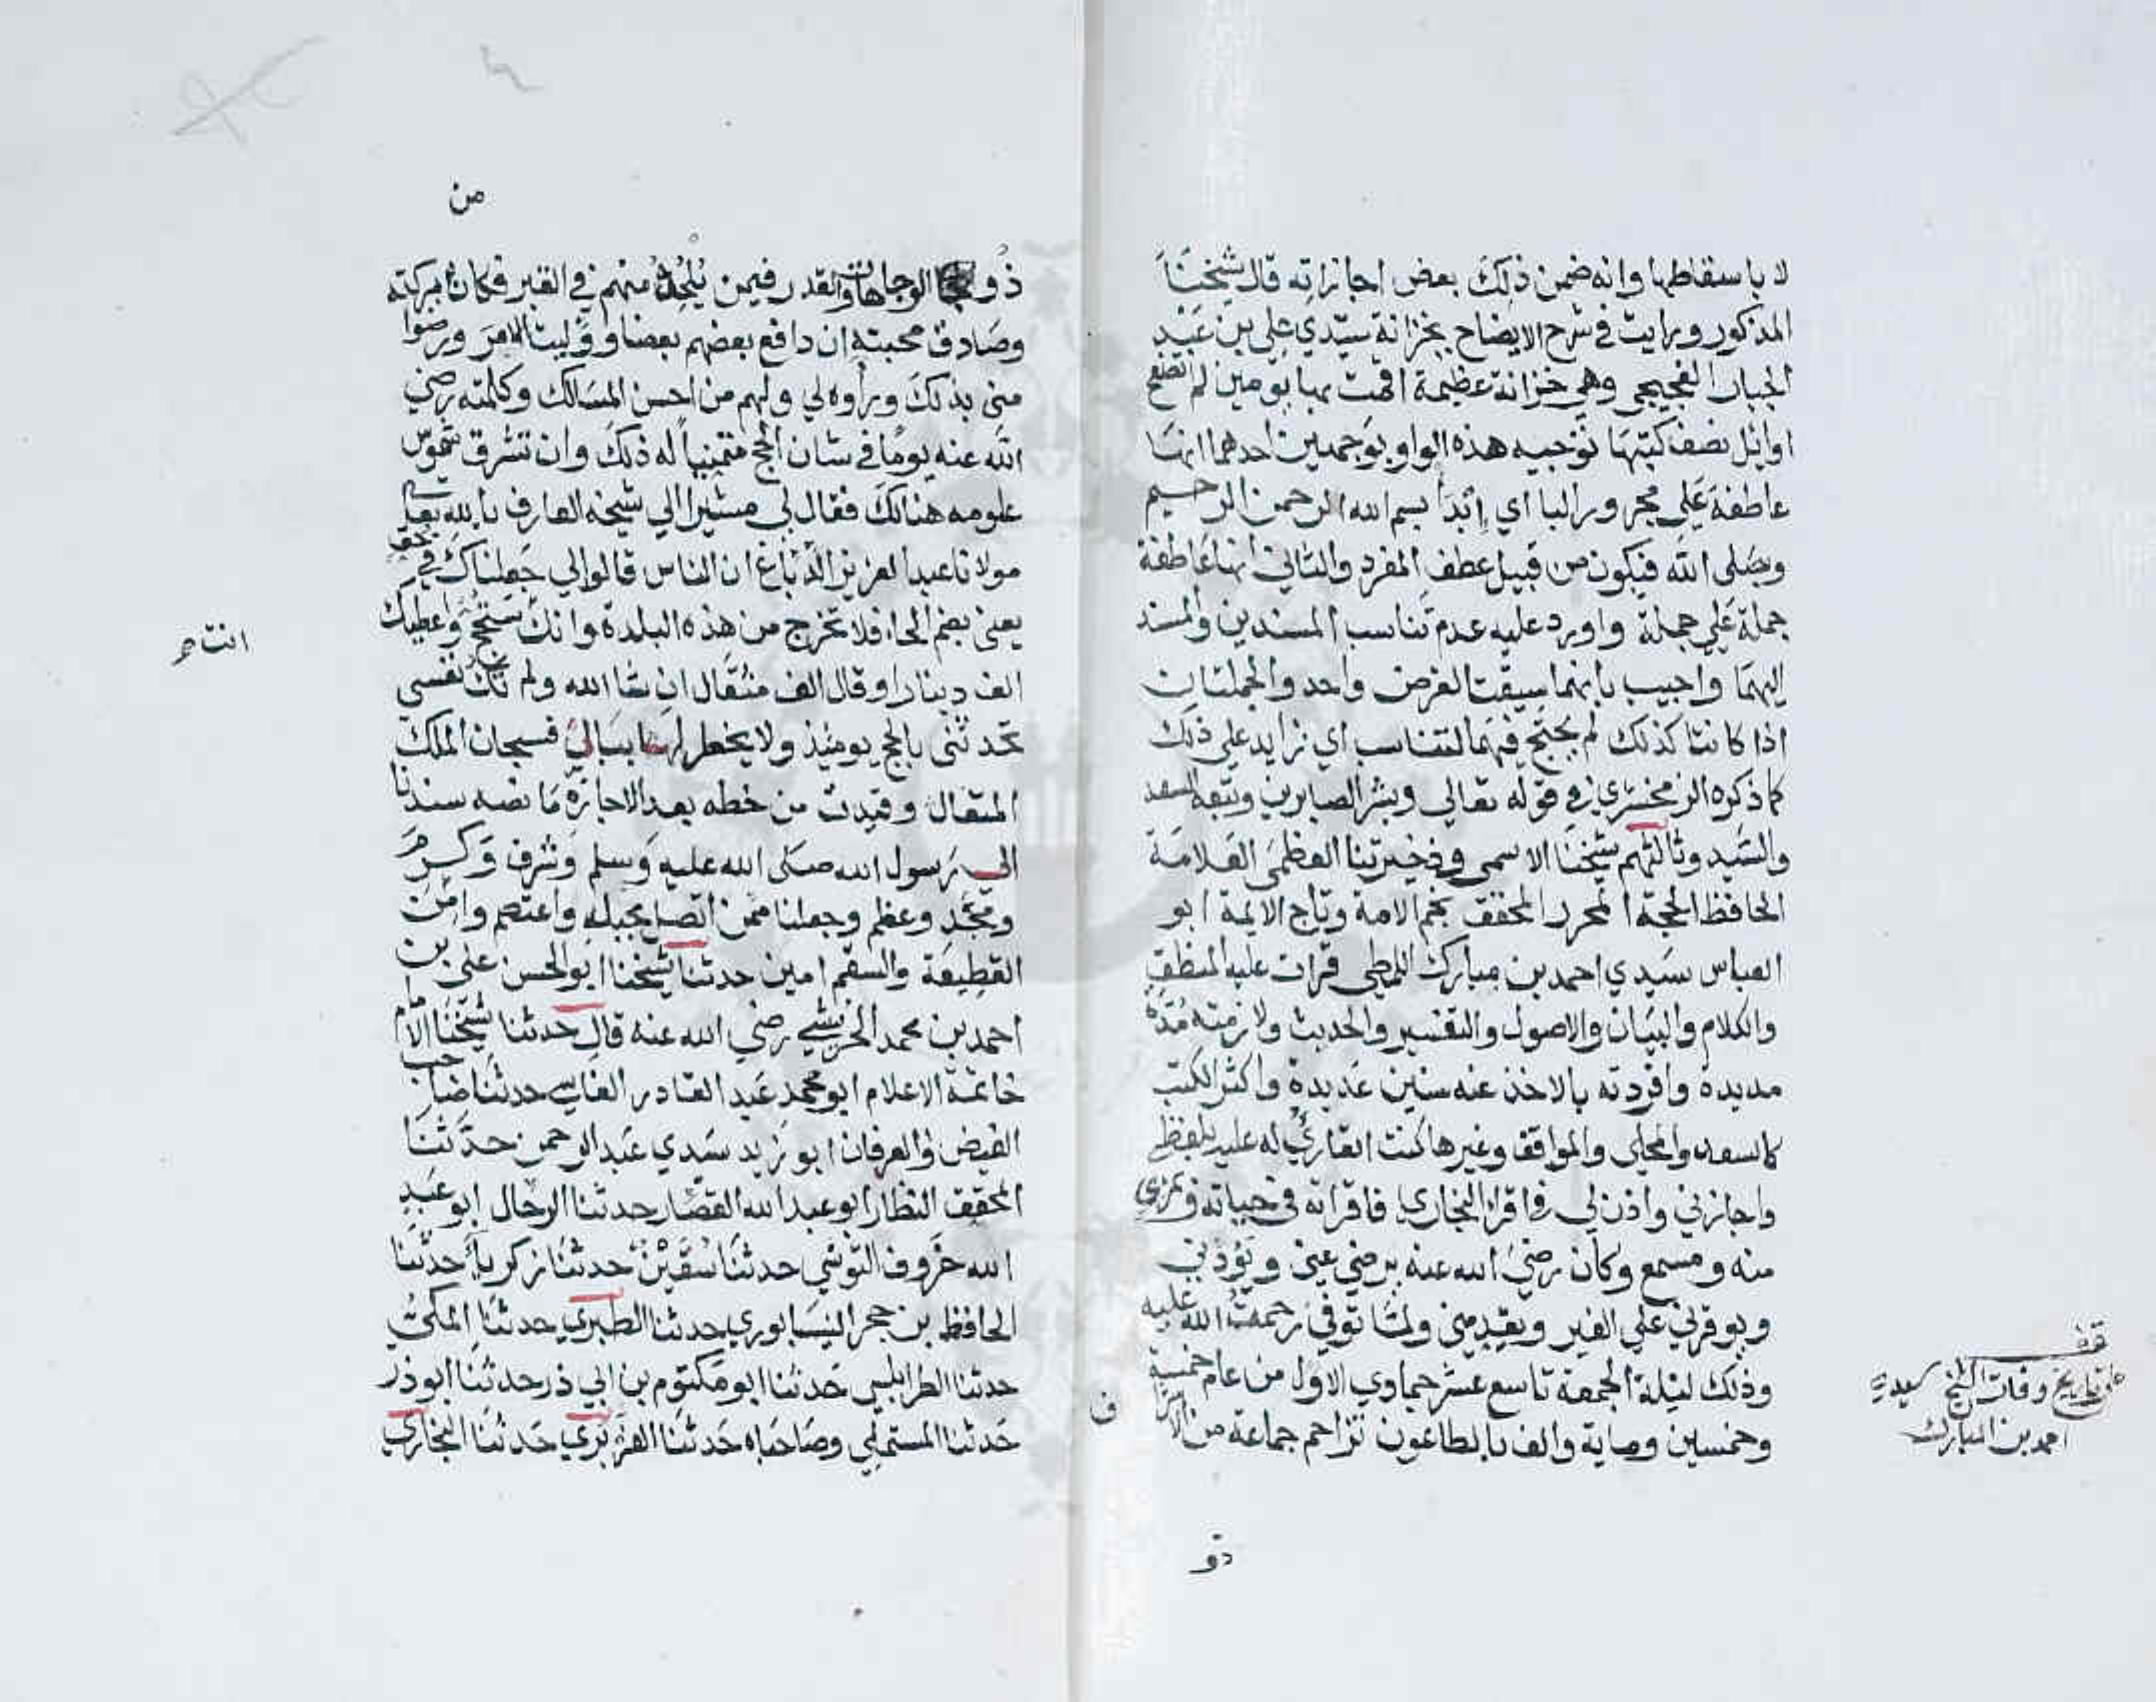 لا باسقاطها وانه ضمن ذلك بعض اجازاته قال شيخنا
المذكور ورايت في شرح الايضاح بخزانة سيدي علي بن عبد
الجبار الفجيجي وهي خزانة عظيمة اقمت بها يومين لم اتصفح
اوائل نصف كتبها توجيه هذه الواو بوجهين احدهما انها
عاطفة علي مجرور البا اي ابدأ بسم الله الرحمن الرحيم
وصلى الله فيكون من قبيل عطف المفرد والثاني انها عاطفة
جملة علي جملة واورد عليه عدم تناسب المسندين والمسند
اليهما واجيب بانهما سيقتا لغرض واحد والجملتان
اذا كانتا كذلك لم يحتج فيهما لتناسب اي زايد علي ذلك
كما ذكره الزمخشري في قوله تعالي وبشر الصابرين وتبعه السعد
والسيد وثالثهم شيخنا الاسمى وذخيرتنا العظمى العلامة
الحافظ الحجة المحرر المحقق نجم الامة وتاج الايمة ابو
العباس سيدي احمد بن مبارك اللمطي قرات عليه المنطق
والكلام والبيان والاصول والتفسير والحديث ولازمته مدة
مديدة وافردته بالاخذ عنه سنين عديدة واكثر الكتب
كالسعد والمحلي والمواقف وغيرها كنت القاري له عليه بلفظي
واجازني واذن لي في اقرا البخاري فاقراته في حياته في
منه ومسمع وكان رضي الله عنه يرضي عني ويؤذني
ويوقرني علي الغير ويقدمني ولما توفي رحمة الله عليه
وذلك ليلة الجمعة تاسع عشر جماوي الاول من عام خمسة
وخمسين وماية والف بالطاعون تزاحم جماعة من
ذو
قف
علي تاريخ وفات الشيخ سيدي
احمد بن المبارك
من
ذو الوجاهات والقدر فيمن يلحده منهم في القبر فكان بركته
وصادق محبته ان دافع بعضهم بعضا ووليت الامر ورضوا
مني بذلك وراوه لي ولهم من احسن المسالك وكلمته رضي
الله عنه يوما في شان الحج متمنيا له ذلك وان تشرق شموس
علومه هنالك فقال لي مشيرا الي شيخه العارف بالله
مولانا عبد العزيز الدباغ ان الناس قالوا لي جعلناك في حق
يعني بضم الحاء فلا تخرج من هذه البلدة وانك ستحج واعطيك
الف دينار او قال الف مثقال ان شا الله ولم تك نفسي
تحدثني بالحج يومئذ ولا يخطر لها ببالي فسبحان الملك
المتعال وقيدت من خطه بعد الاجازة ما نصه سندنا
الى رسول الله صلى الله عليه وسلم وشرف وكرم
ومجد وعظم وجعلنا ممن اتصل بحبله واعتصم وامن
القطيعة والسقم امين حدثنا شيخنا ابو الحسن علي بن
احمد بن محمد الخريشي رضي الله عنه قال حدثنا شيخنا الامام
خاتمة الاعلام ابو محمد عبد القادر الفاسي حدثنا صاحب
الفيض والعرفان ابو زيد سيدي عبد الرحمن حدثنا
المحقق النظار ابو عبد الله القصار حدثنا الرحال ابو عبد
الله خروف التونسي حدثنا سقين حدثنا زكريا حدثنا
الحافظ بن حجر النيسابوري حدثنا الطبري حدثنا المكي
حدثنا الطرابلسي حدثنا ابو مكتوم بن ابي ذر حدثنا ابو ذر
حدثنا المستملي وصاحباه حدثنا الفربري حدثنا البخاري
انت
ف